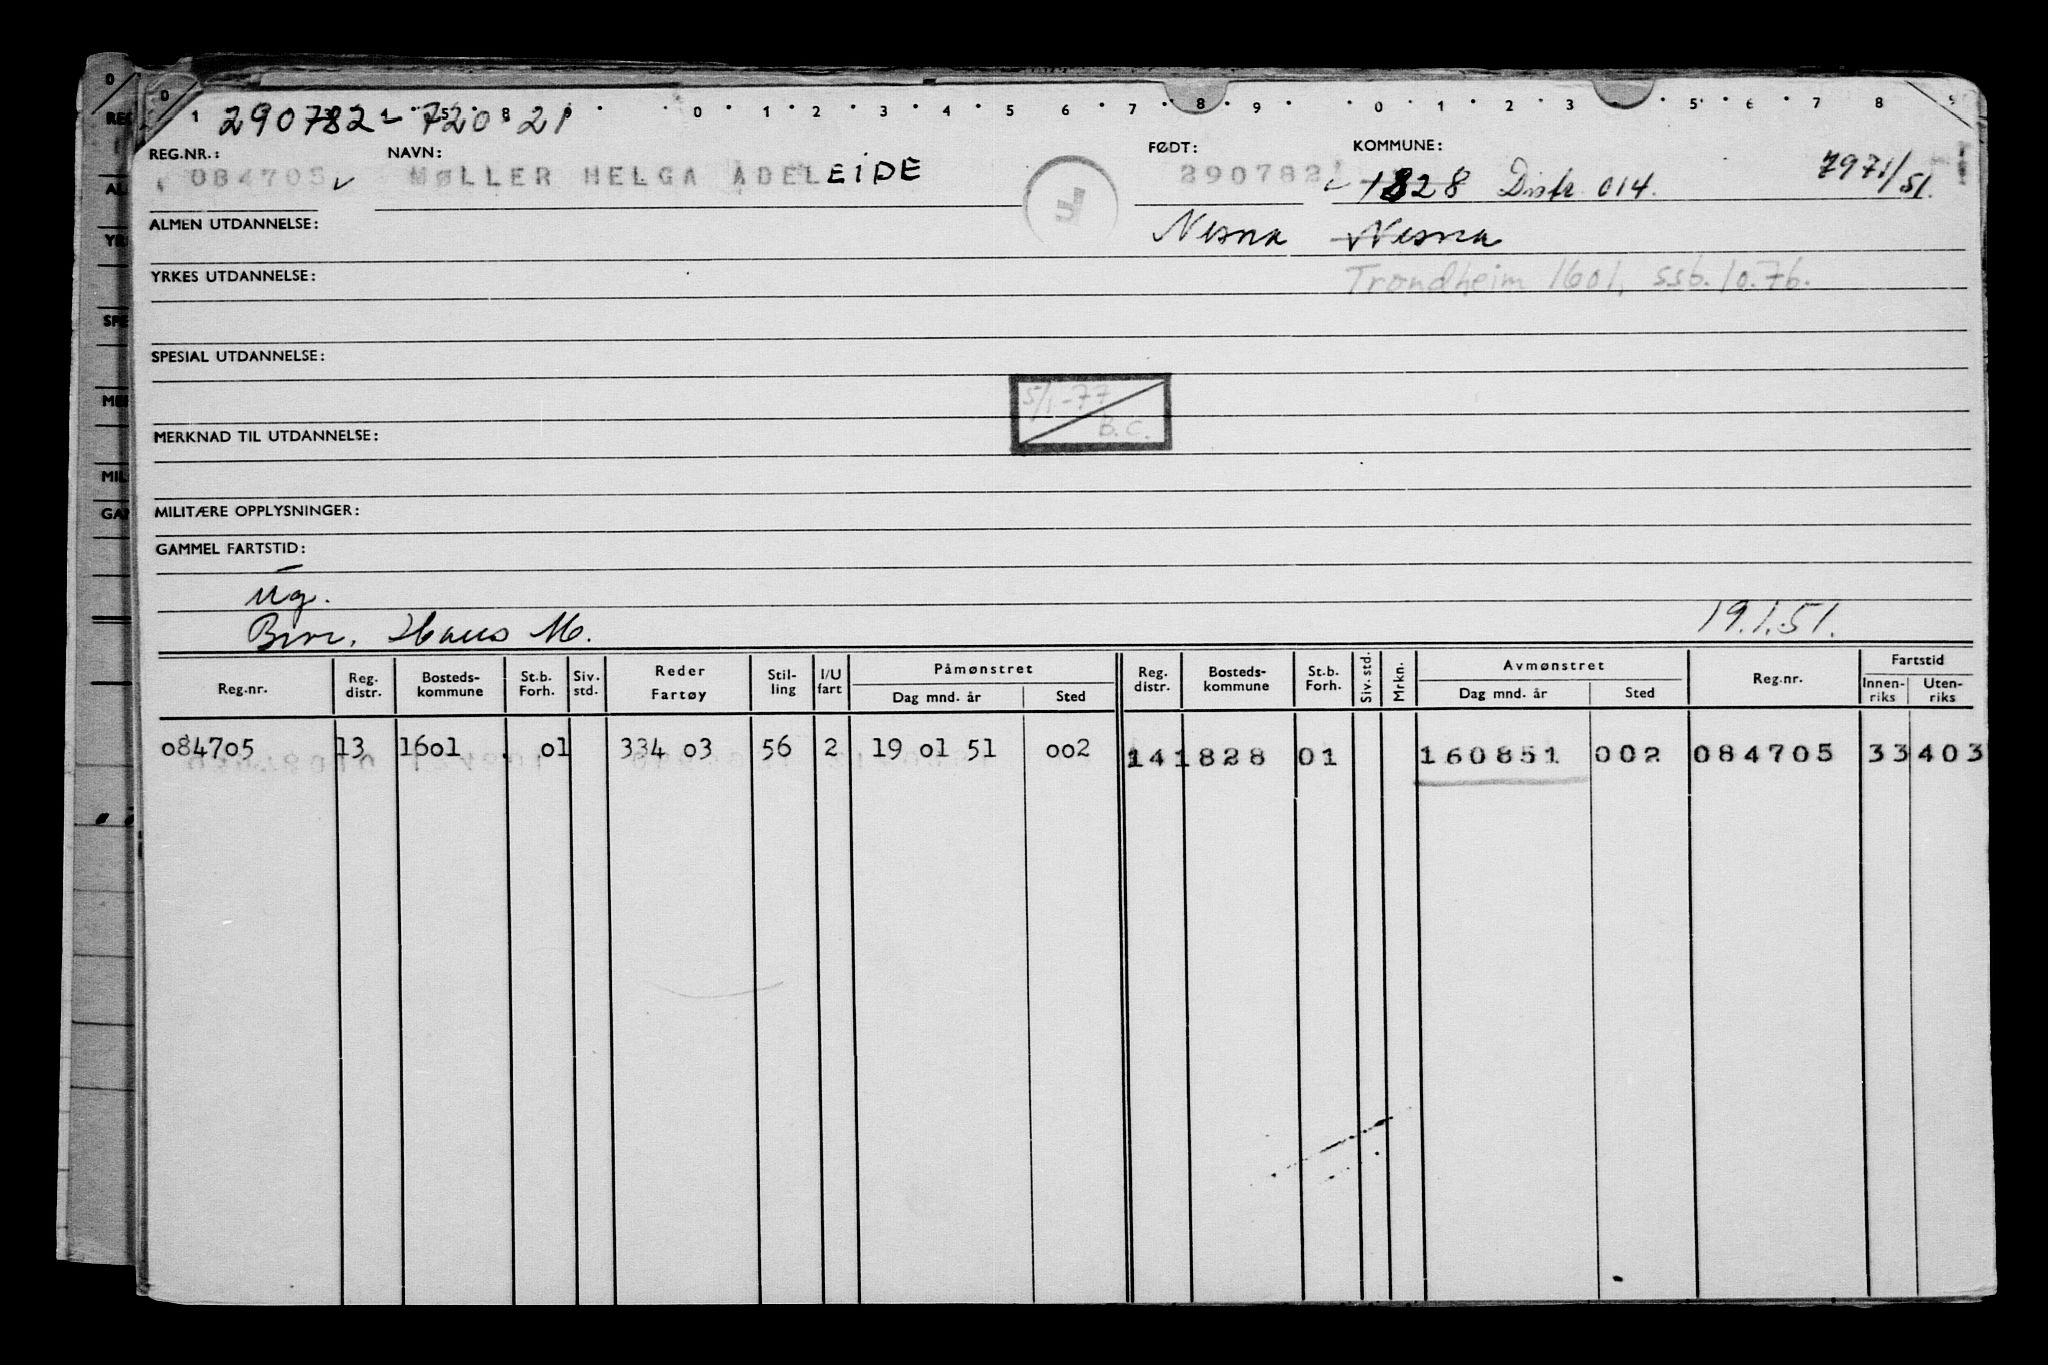 0 1 2 5 8 9 0 1 2 3 4 5 6 7 8 9 0 1 2 3 5 6 7 8 9
290782 - 720 21
REG.NR.: NAVN: FØDT: KOMMUNE:
084705 MØLLER HELGA ADELEIDE 290782 1828 Distr. 014. 7971/51.
ALMEN UTDANNELSE: Nesna Nesna
YRKES UTDANNELSE: Trondheim 1601, ssb. 10.76.
SPESIAL UTDANNELSE:
5/1-77
B.C.
MERKNAD TIL UTDANNELSE:
MILITÆRE OPPLYSNINGER:
GAMMEL FARTSTID:
Ug.
Hans M. 19.1.51.
Reg.nr. Reg. distr. Bosteds-kommune St.b. Forh. Siv. std. Reder Fartøy Stil-ling I/U fart Påmønstret Dag mnd. år Sted Reg. distr. Bosteds-kommune St.b. Forh. Siv. std. Mrkn. Avmønstret Dag mnd. år Sted Reg.nr. Fartstid Innen-riks Uten-riks
084705 13 1601 01 334 03 56 2 19 01 51 002 14 1828 01 160851 002 084705 33 403